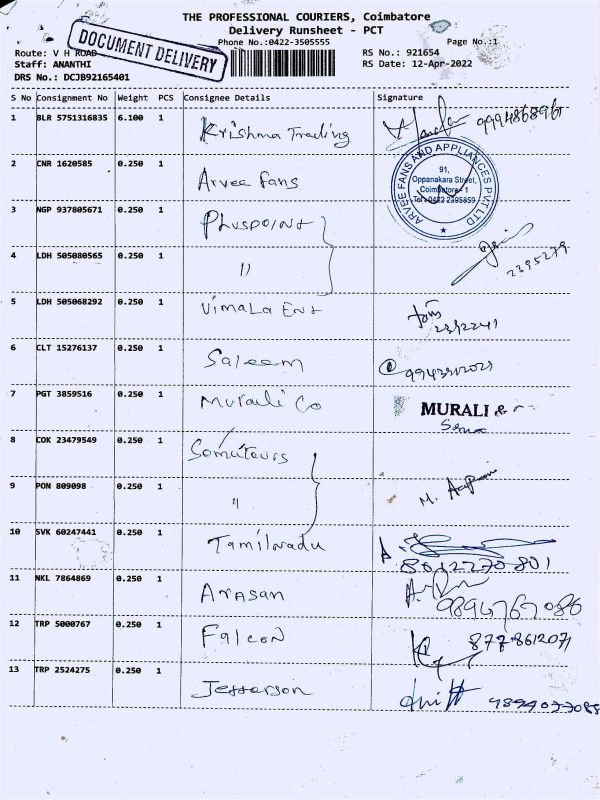 THE PROFESSIONAL COURIERS, Coimbatore
Delivery Runsheet - PCT
Phone No.:0422-3505555
Page No.:1
DOCUMENT DELIVERY
Route: V H ROAD
RS No.: 921654
Staff: ANANTHI
RS Date: 12-Apr-2022
DRS No.: DCJB92165401
S No Consignment No Weight PCS Consignee Details Signature
1 BLR 5751316835 6.100 1 Krishna Trading
2 CNR 1620585 0.250 1 Arvee fans
ARVEE FANS AND APPLIANCES PVT LTD
91,
Oppanakara Street,
Coimbatore - 1
Tel: 0422 2395859
3 NGP 937805671 0.250 1 Pluspoint
4 LDH 505080565 0.250 1 "
2395279
5 LDH 505068292 0.250 1 Vimala Ent
2392241
6 CLT 15276137 0.250 1 Saleem
7 PGT 3859516 0.250 1 Murali Co MURALI &
8 COK 23479549 0.250 1 Somutours
9 PON 809098 0.250 1 "
10 SVK 60247441 0.250 1 Tamilnadu
8012270801
11 NKL 7864869 0.250 1 Arasan
12 TRP 5000767 0.250 1 Falcon 8778612071
13 TRP 2524275 0.250 1 Jefferson